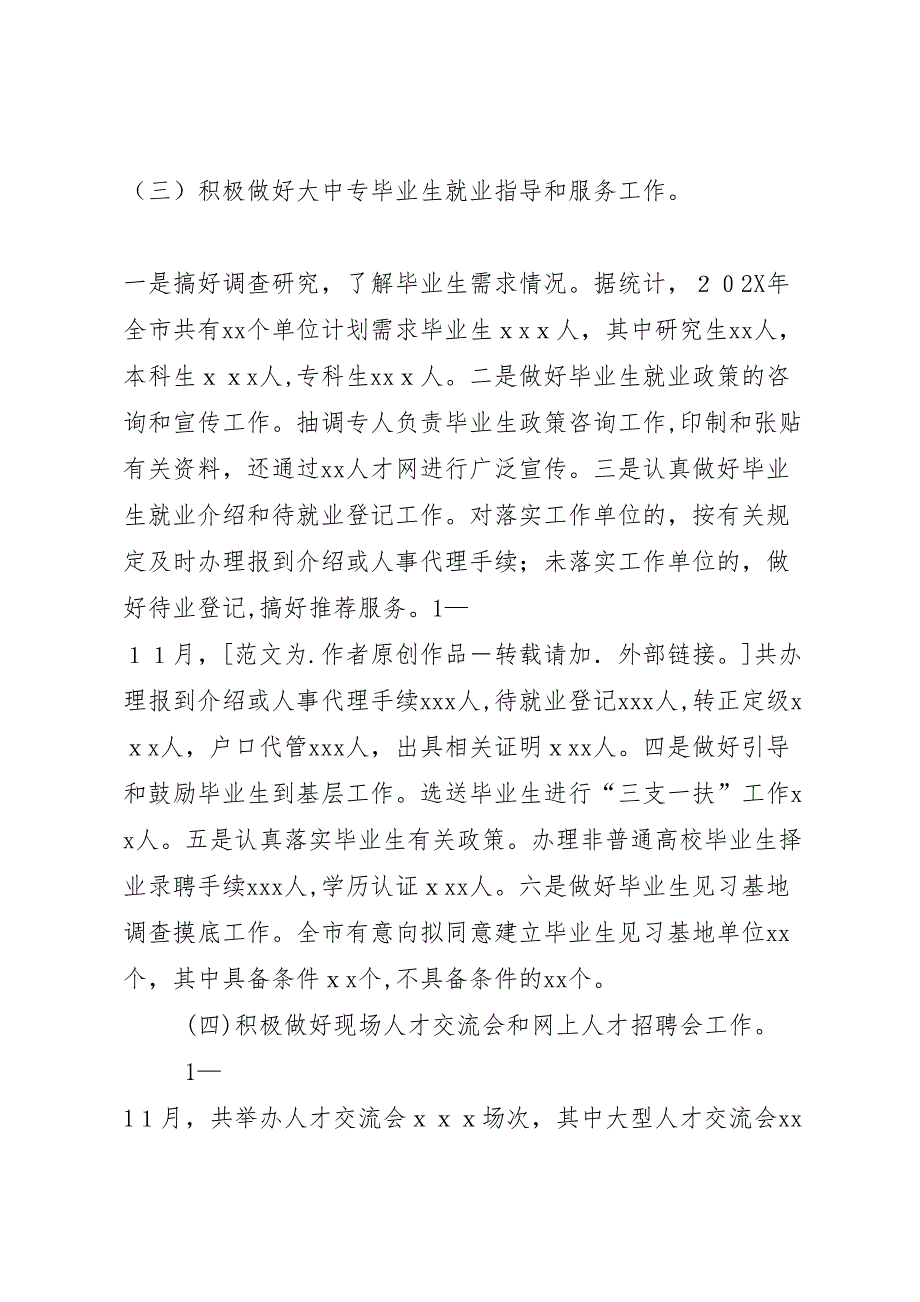 （三）积极做好大中专毕业生就业指导和服务工作。
一是搞好调查研究，了解毕业生需求情况。据统计，２０2X年
全市共有xx个单位计划需求毕业生ｘxｘ人，其中研究生xx人，
本科生ｘｘx人,专科生xxｘ人。二是做好毕业生就业政策的咨
询和宣传工作。抽调专人负责毕业生政策咨询工作,印制和张贴
有关资料，还通过xx人才网进行广泛宣传。三是认真做好毕业
生就业介绍和待就业登记工作。对落实工作单位的，按有关规
定及时办理报到介绍或人事代理手续；未落实工作单位的，做
好待业登记,搞好推荐服务。1—
１１月，[范文为.作者原创作品－转载请加．外部链接。]共办
理报到介绍或人事代理手续xxx人,待就业登记xxx人,转正定级x
ｘx人，户口代管xxx人，出具相关证明ｘxx人。四是做好引导
和鼓励毕业生到基层工作。选送毕业生进行“三支一扶”工作x
x人。五是认真落实毕业生有关政策。办理非普通高校毕业生择
业录聘手续xxx人,学历认证ｘxx人。六是做好毕业生见习基地
调查摸底工作。全市有意向拟同意建立毕业生见习基地单位xx
个，其中具备条件ｘx个,不具备条件的xx个。
(四)积极做好现场人才交流会和网上人才招聘会工作。
1—
1１月，共举办人才交流会ｘｘｘ场次，其中大型人才交流会xx